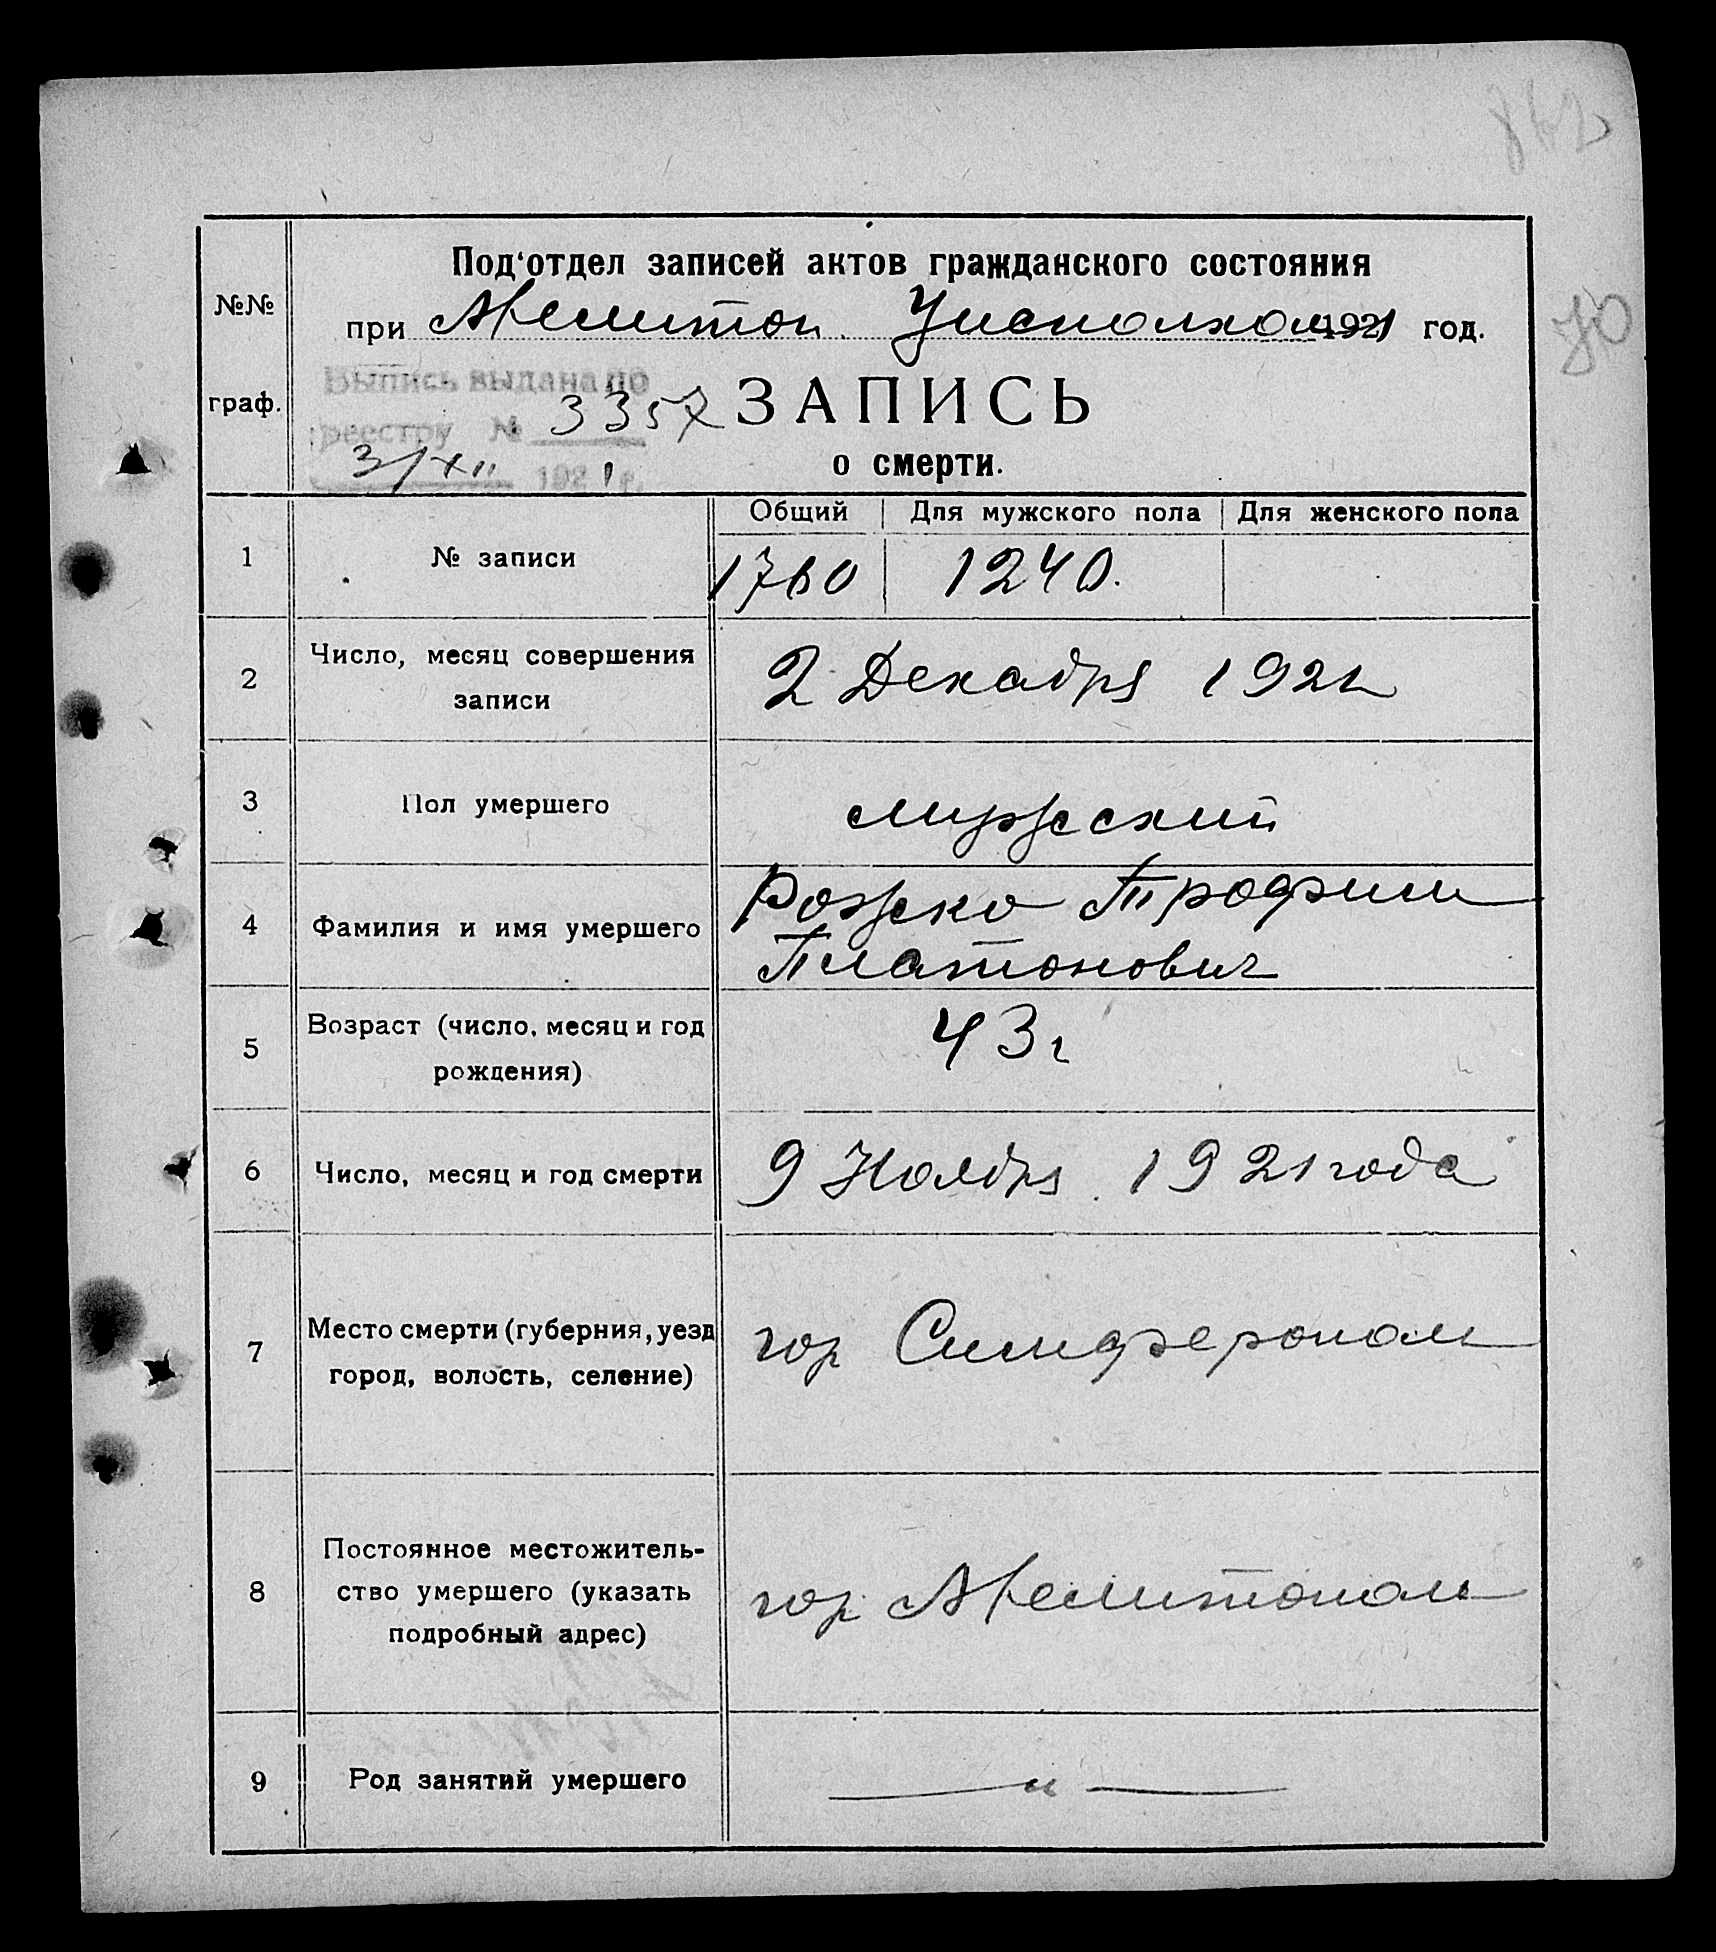 №№
граф.
Под'отдел записей актов гражданского состояния
при Мелитоп. Уисполкоме 1921 год.
Выпись выдана по
реестру № 3357
3/XII 1921 г.
ЗАПИСЬ
о смерти.
Общий Для мужского пола Для женского пола
1 № записи 1760 1240.
2 Число, месяц совершения
записи
2 Декабря 1921
3 Пол умершего мужский
4 Фамилия и имя умершего Рожко Трофим
Платонович
5 Возраст (число, месяц и год
рождения)
43 г
6 Число, месяц и год смерти 9 Ноября 1921 года
7 Место смерти (губерния, уезд
город, волость, селение)
гор Симферополь
8 Постоянное местожитель-
ство умершего (указать
подробный адрес)
гор Мелитополь
9 Род занятий умершего — „ —
70